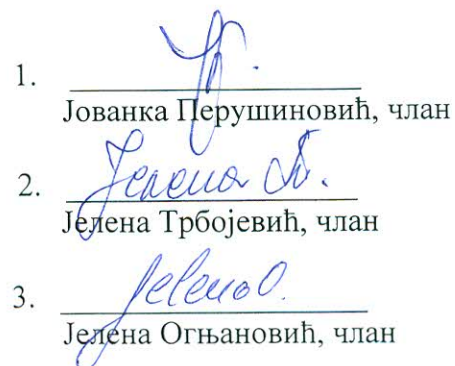 1.
Јованка Перушиновић, члан
2. Јелена Т.
Јелена Трбојевић, члан
3. Jelena O.
Јелена Огњановић, члан